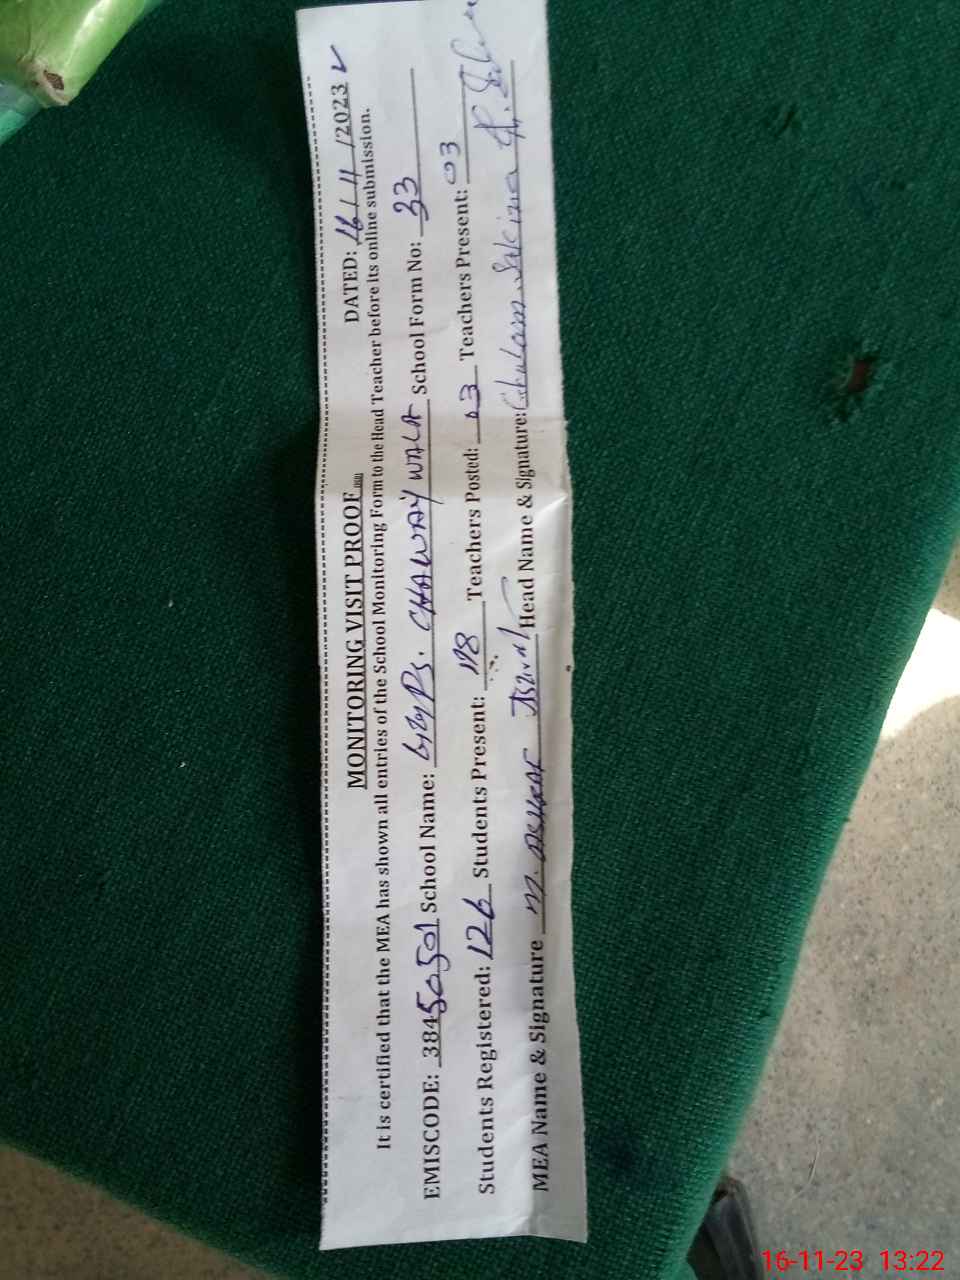 MONITORING VISIT PROOF DATED: 16/11/2023
It is certified that the MEA has shown all entries of the School Monitoring Form to the Head Teacher before its online submission.
EMISCODE: 38450501 School Name: CHAWAY WALA School Form No: 33
Students Registered: 126 Students Present: 118 Teachers Posted: 03 Teachers Present: 03
MEA Name & Signature M. ASHRAF Head Name & Signature: Ghulam Sakina
16-11-23 13:22